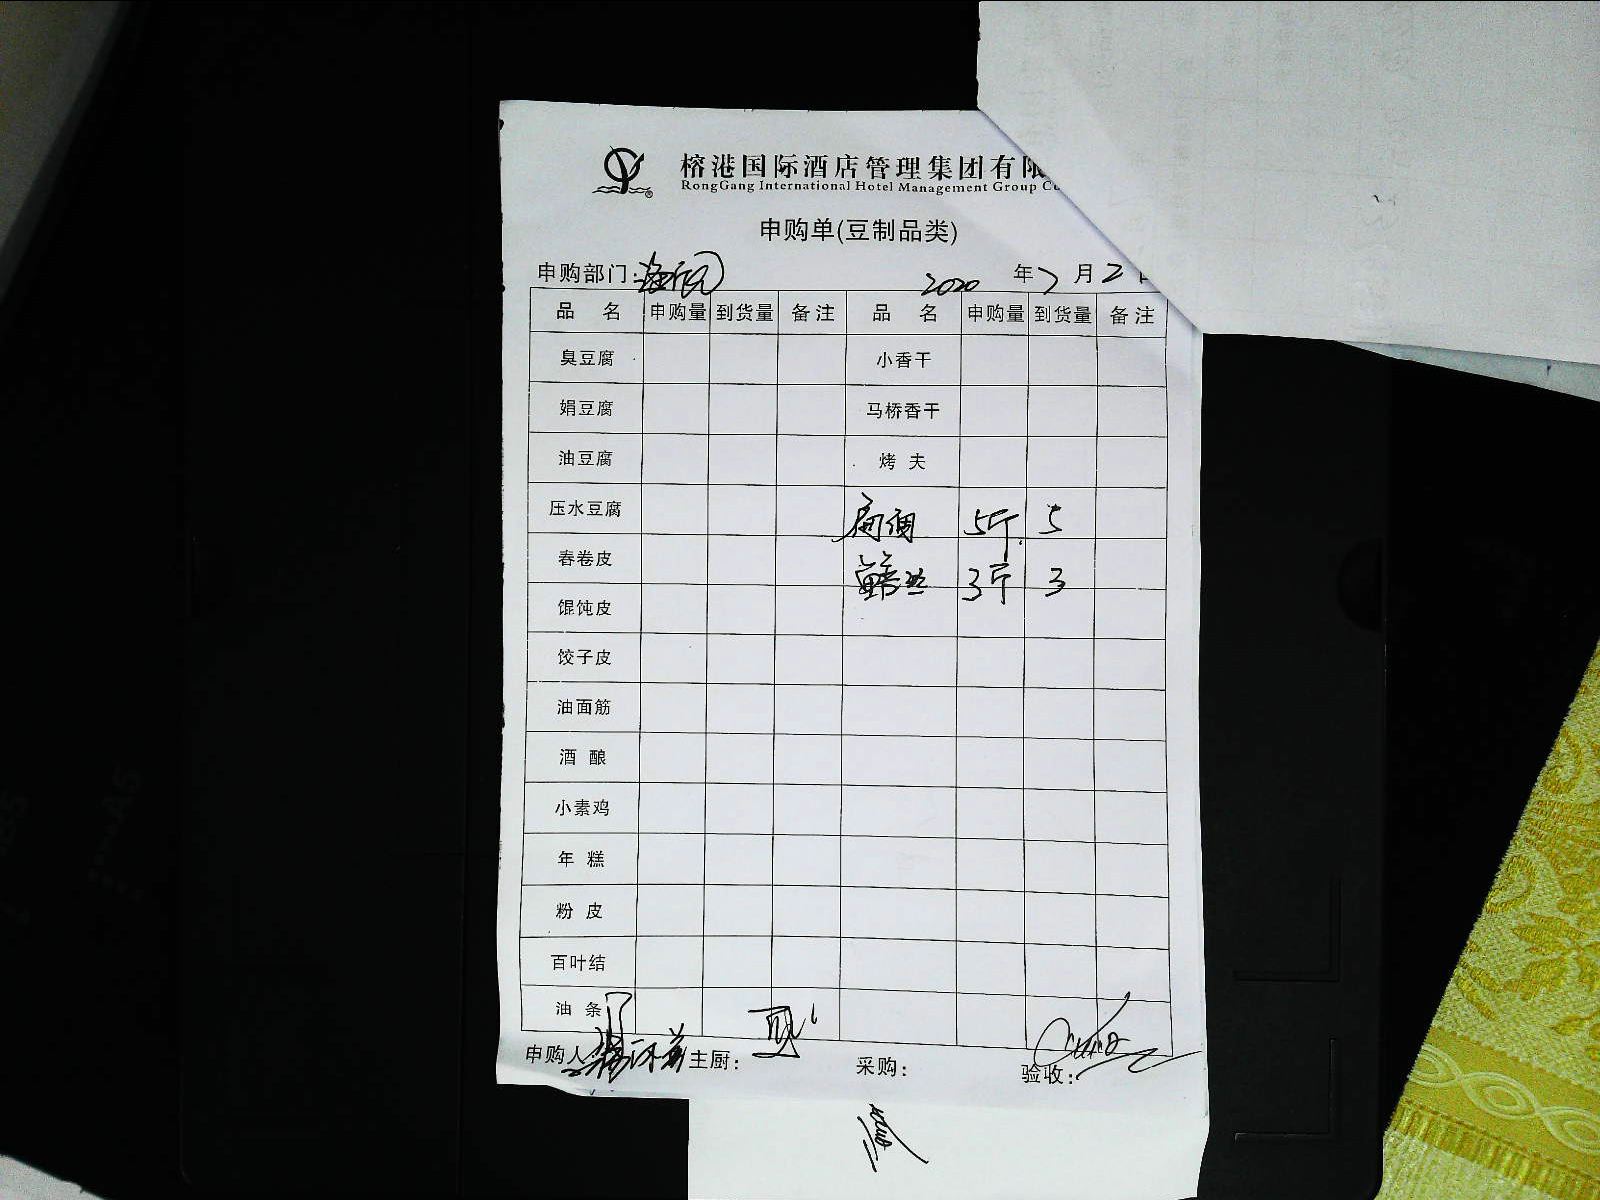 榕港国际酒店管理集团有限
RongGang International Hotel Management Group Co
申购单(豆制品类)
申购部门: 2020 年 7 月 2 日
品 名 申购量 到货量 备注 品 名 申购量 到货量 备注
臭豆腐 小香干
娟豆腐 马桥香干
油豆腐 烤 夫
压水豆腐 5斤 5
春卷皮 3斤 3
馄饨皮
饺子皮
油面筋
酒 酿
小素鸡
年 糕
粉 皮
百叶结
油 条
申购人 主厨: 采购: 验收: